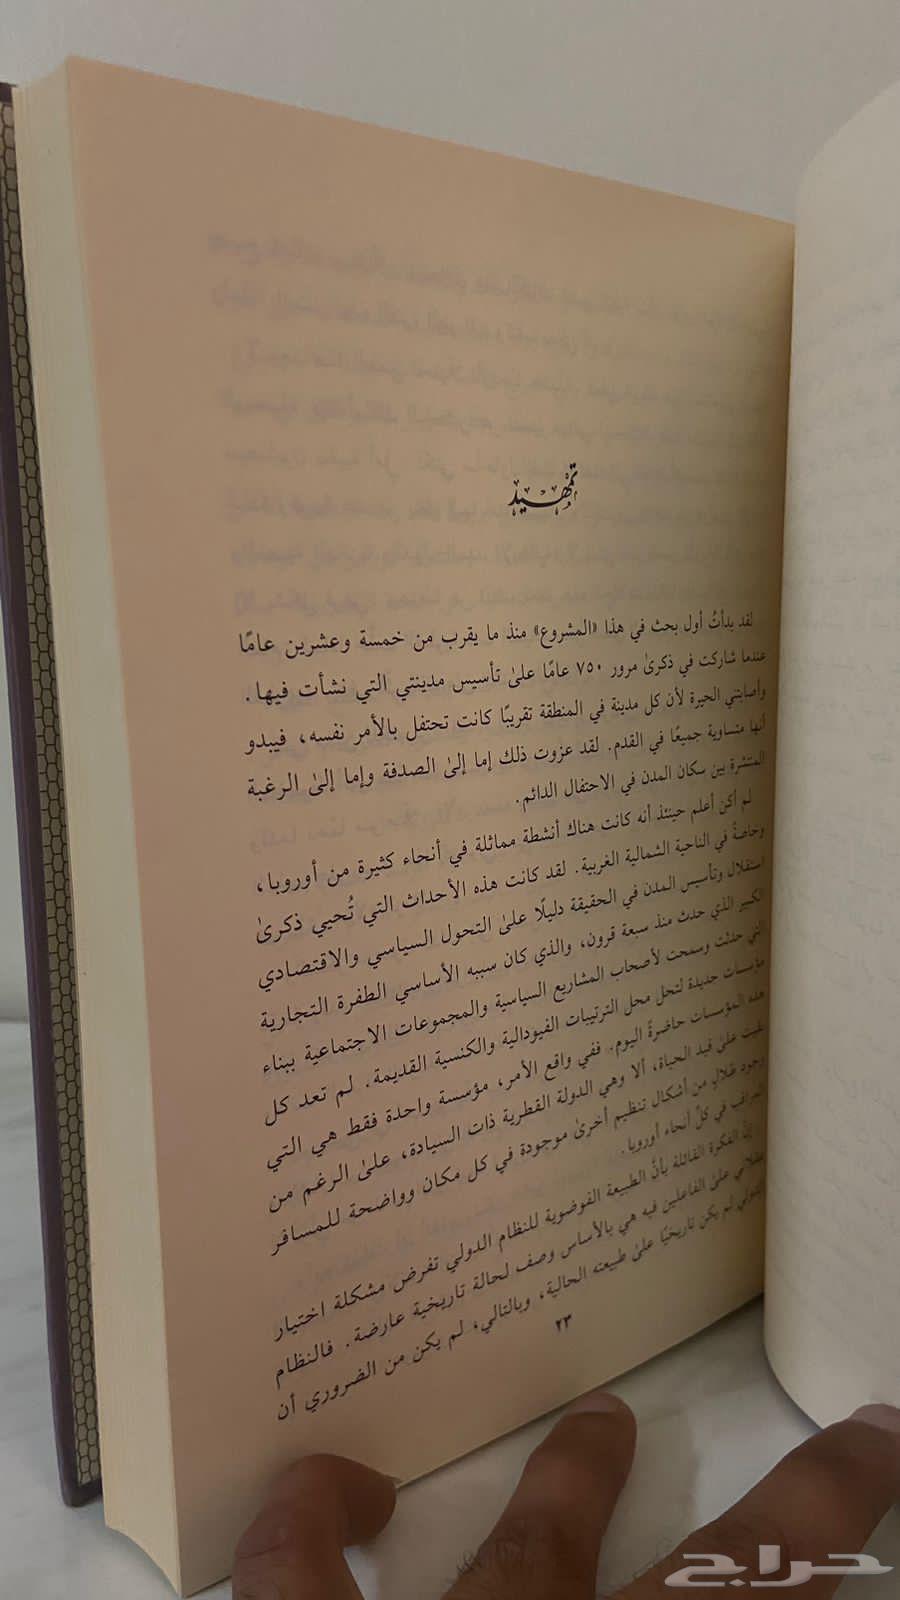 تمهيد
لقد بدأتُ أول بحث في هذا «المشروع» منذ ما يقرب من خمسة وعشرين عامًا
عندما شاركت في ذكرىٰ مرور ٧٥٠ عامًا علىٰ تأسيس مدينتي التي نشأت فيها.
وأصابتني الحيرة لأن كل مدينة في المنطقة تقريبًا كانت تحتفل بالأمر نفسه، فيبدو
أنها متساوية جميعًا في القدم. لقد عزوت ذلك إما إلىٰ الصدفة وإما إلىٰ الرغبة
المنتشرة بين سكان المدن في الاحتفال الدائم.
لم أكن أعلم حينئذ أنه كانت هناك أنشطة مماثلة في أنحاء كثيرة من أوروبا،
وخاصةً في الناحية الشمالية الغربية. لقد كانت هذه الأحداث التي تُحيي ذكرىٰ
استقلال وتأسيس المدن في الحقيقة دليلًا علىٰ التحول السياسي والاقتصادي
الكبير الذي حدث منذ سبعة قرون، والذي كان سببه الأساسي الطفرة التجارية
التي حدثت وسمحت لأصحاب المشاريع السياسية والمجموعات الاجتماعية ببناء
مؤسسات جديدة لتحل محل الترتيبات الفيودالية والكنسية القديمة. لم تعد كل
هذه المؤسسات حاضرةً اليوم. ففي واقع الأمر، مؤسسة واحدة فقط هي التي
بقيت علىٰ قيد الحياة، ألا وهي الدولة القطرية ذات السيادة، علىٰ الرغم من
وجود ظلالٍ من أشكال تنظيم أخرىٰ موجودة في كل مكان وواضحة للمسافر
المراقب في كلِّ أنحاء أوروبا.
إنَّ الفكرة القائلة بأنَّ الطبيعة الفوضوية للنظام الدولي تفرض مشكلة اختيار
عقلاني علىٰ الفاعلين فيه هي بالأساس وصف لحالة تاريخية عارضة. فالنظام
الدولي لم يكن تاريخيًا علىٰ طبيعته الحالية، وبالتالي، لم يكن من الضروري أن
٢٣
حراج